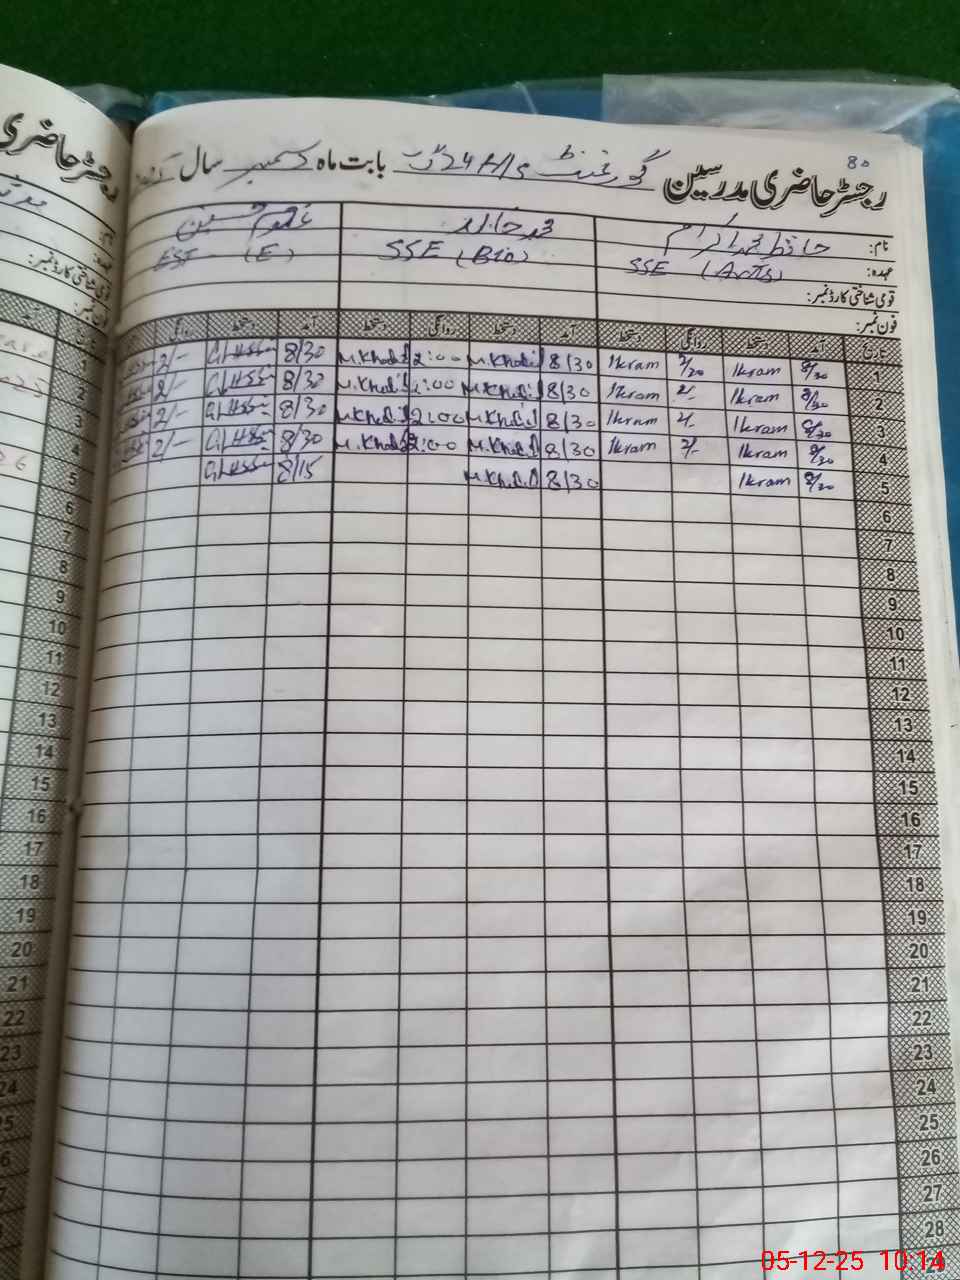 80
رجسٹر حاضری مدرسین گورنمنٹ H/S 24 بابت ماہ دسمبر سال
نام: حافظ محمد اکرام محمد خالد غلام حسین
عہدہ: SSE (Arts) SSE (Bio) EST (E)
قومی شناختی کارڈ نمبر:
فون نمبر:
تاریخ آمد دستخط روانگی دستخط آمد دستخط روانگی دستخط آمد دستخط روانگی
1 8/30 Ikram 2/20 Ikram 8/30 M.Khalid 2:00 M.Khalid 8/30 G.Hussain 2/-
2 8/30 Ikram 2/- Ikram 8/30 M.Khalid 2:00 M.Khalid 8/30 G.Hussain 2/-
3 8/30 Ikram 2/- Ikram 8/30 M.Khalid 2:00 M.Khalid 8/30 G.Hussain 2/-
4 8/30 Ikram 2/- Ikram 8/30 M.Khalid 2:00 M.Khalid 8/30 G.Hussain 2/-
5 8/30 Ikram 8/30 M.Khalid 8/15 G.Hussain
6
7
8
9
10
11
12
13
14
15
16
17
18
19
20
21
22
23
24
25
26
27
28
رجسٹر حاضری
نام:
عہدہ:
قومی شناختی کارڈ نمبر:
فون نمبر:
1
2
3
4
5
6
7
8
9
10
11
12
13
14
15
16
17
18
19
20
21
22
23
24
05-12-25 10:14